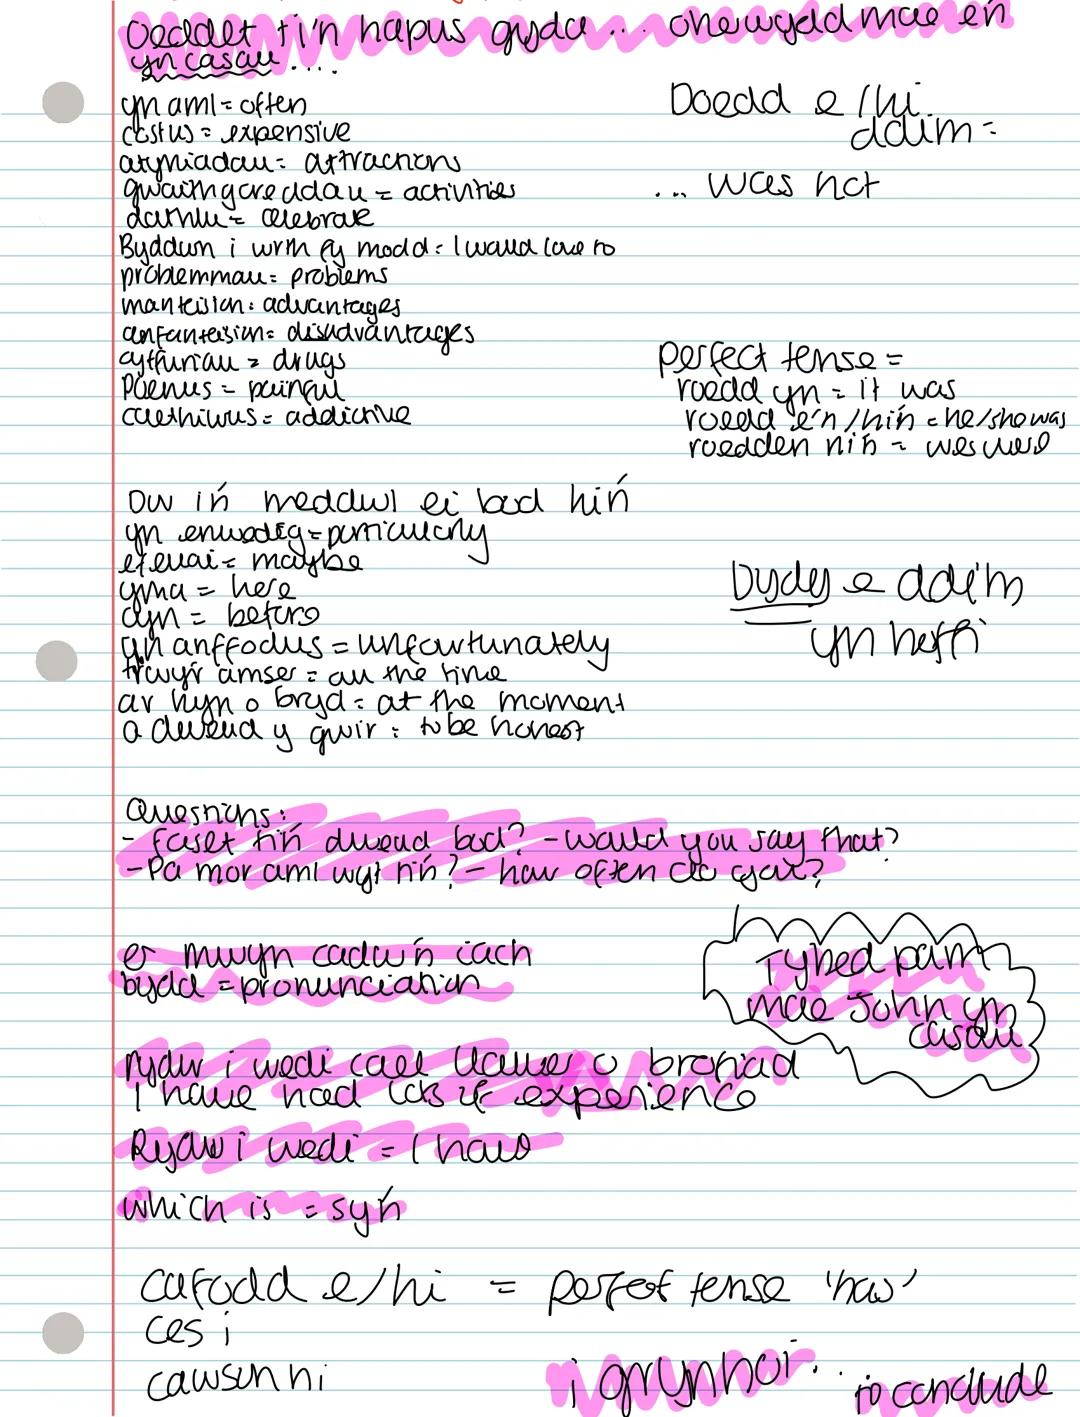 Oeddet ti'n hapus gyda ... mae e'n
yn casau ....
yn aml = often
costus = expensive
atyniadau = attractions
gwaithgareddau = activities
dathlu = celebrate
Byddwn i wrth fy modd = I would love to
problemmau = problems
manteision = advantages
anfanteision = disadvantages
cyffuriau = drugs
Poenus = painful
caethiwus = addictive
Doedd e / hi
ddim =
... was not
perfect tense =
roedd yn = it was
roedd e'n / hi'n = he/she was
roedden ni'n =
Dw i'n meddwl ei bod hi'n
yn enwedig = particularly
efallai = maybe
yma = here
cyn = before
yn anffodus = unfortunately
trwy'r amser = all the time
ar hyn o bryd = at the moment
a dweud y gwir = to be honest
Dydy e ddim
yn hoffi
Questions:
- Faset ti'n dweud bod? - would you say that?
- Pa mor aml wyt ti'n? - how often do you?
er mwyn cadw'n iach
bydd = pronunciation
Tybed pam
mae John yn
casau
rydw i wedi cael llawer o brofiad
I have had lots of experience
Rydw i wedi = I have
which is = sy'n
cafodd e/hi = perfect tense 'had'
ces i
cawson ni
i grynhoi... to conclude